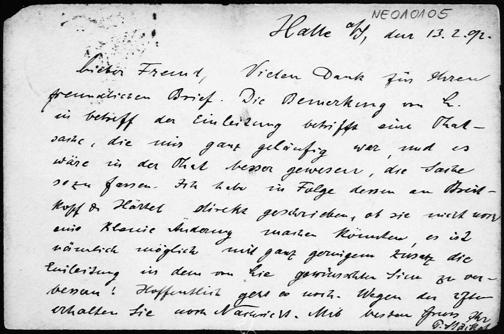 NEO10105
Halle a/S, den 13.2.92.
Lieber Freund, Vielen Dank für Ihren
freundlichen Brief. Die Bemerkung von
in betreff der Einleitung betrifft eine That-
sache, die mir ganz geläufig war, und es
wäre in der That besser gewesen, die Sache
so zu fassen. Ich habe in Folge dessen an Breit-
kopf & Härtel direkt geschrieben, ob sie nicht noch
eine kleine Änderung machen könnten, es ist
nämlich möglich mit ganz geringem Zusatz die
Einleitung in dem von Sie gewünschten Sinn zu ver-
bessern! Hoffentlich geht es noch. Wegen der
erhalten Sie noch Nachricht. Mit bestem Gruss Ihr
P. Stäckel